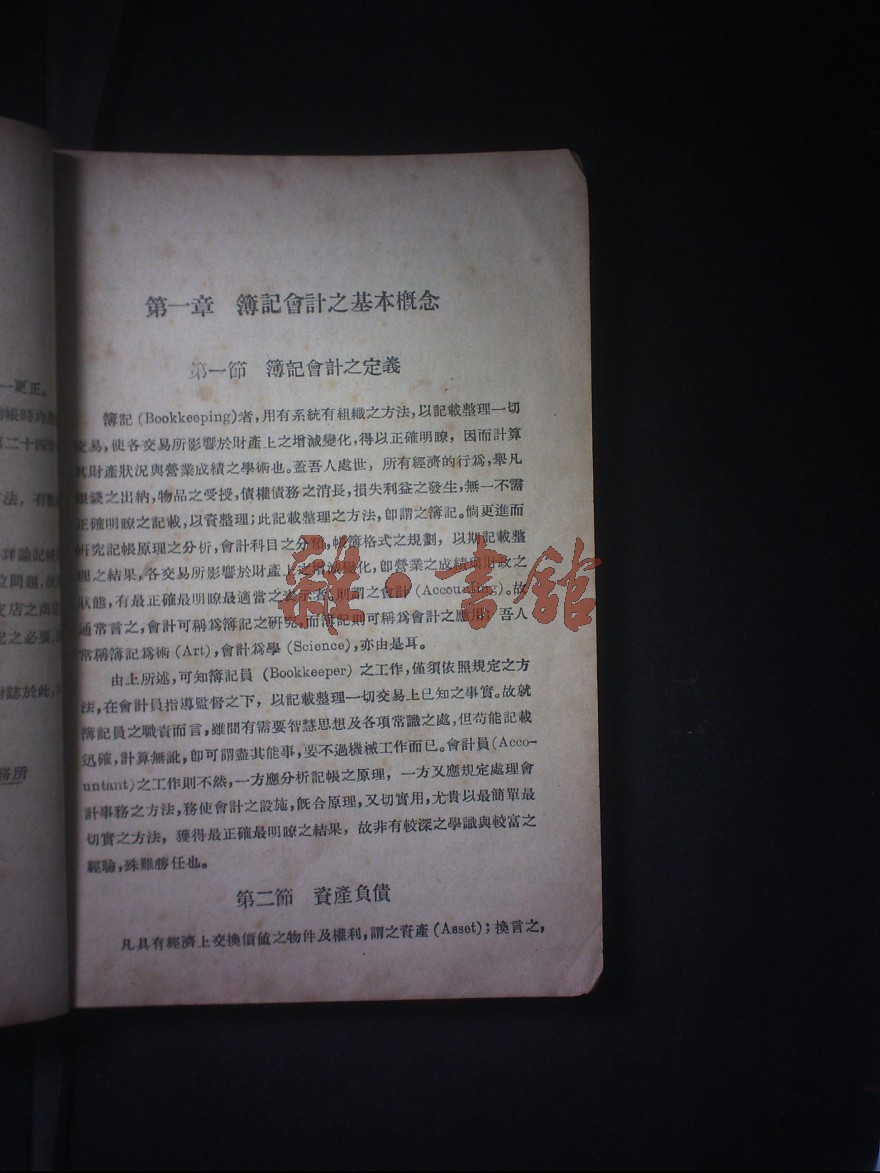 一更正。
帳時均
二十四
法，有
詳論記帳
位問題，
支店之商
此之必要，
誌於此，
務所
第一章 簿記會計之基本概念
第一節 簿記會計之定義
簿記 (Bookkeeping)者，用有系統有組織之方法，以記載整理一切
交易，使各交易所影響於財產上之增減變化，得以正確明瞭，因而計算
其財產狀況與營業成績之學術也。蓋吾人處世，所有經濟的行爲，舉凡
銀錢之出納，物品之受授，債權債務之消長，損失利益之發生，無一不需
正確明瞭之記載，以資整理；此記載整理之方法，卽謂之簿記。倘更進而
研究記帳原理之分析，會計科目之分類，帳簿格式之規劃，以期記載整
理之結果，各交易所影響於財產上之增減變化，卽營業之成績與財政之
狀態，有最正確最明瞭最適當之表示者，則謂之會計 (Accounting)。故
通常言之，會計可稱爲簿記之研究，而簿記則可稱爲會計之應用；吾人
常稱簿記爲術 (Art)，會計爲學 (Science)，亦由是耳。
由上所述，可知簿記員 (Bookkeeper) 之工作，僅須依照規定之方
法，在會計員指導監督之下，以記載整理一切交易上已知之事實。故就
簿記員之職責而言，雖間有需要智慧思想及各項常識之處，但苟能記載
迅確，計算無訛，卽可謂盡其能事，要不過機械工作而已。會計員 (Acco-
untant)之工作則不然，一方應分析記帳之原理，一方又應規定處理會
計事務之方法，務使會計之設施，旣合原理，又切實用，尤貴以最簡單最
切實之方法，獲得最正確最明瞭之結果，故非有較深之學識與較富之
經驗，殊難勝任也。
第二節 資產負債
凡具有經濟上交換價値之物件及權利，謂之資產 (Asset)；換言之，
雜·書館